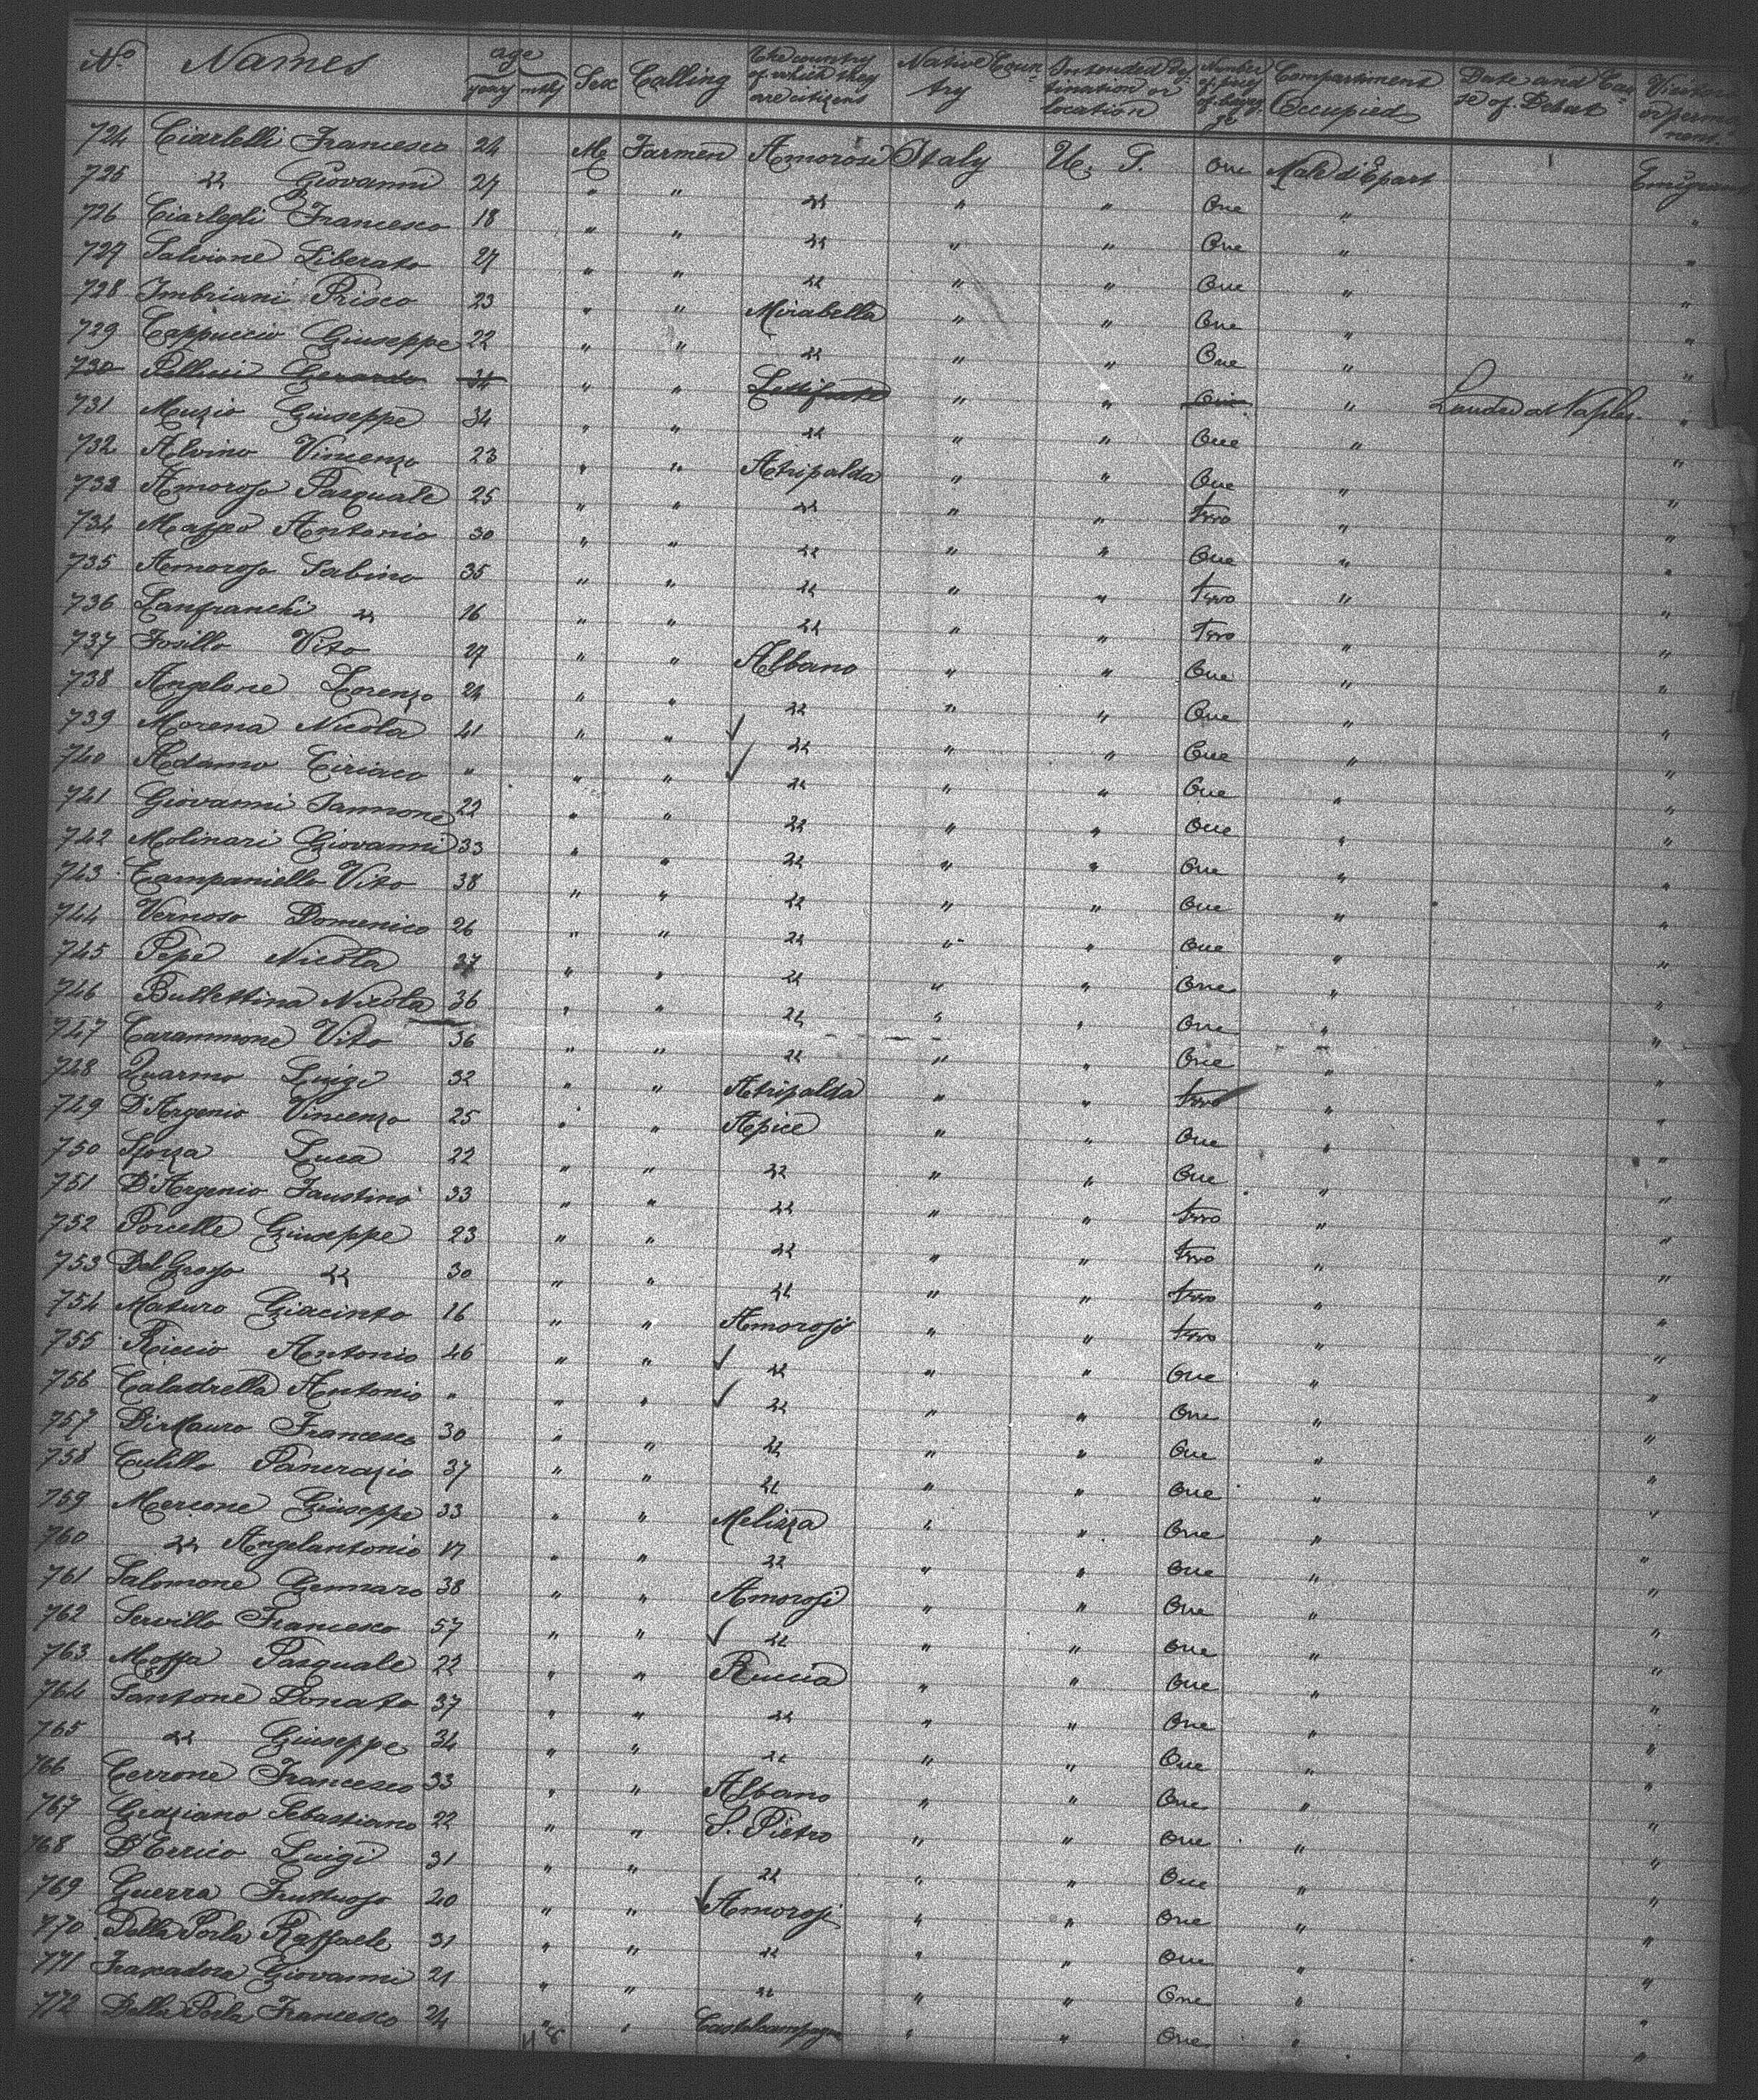 No Names age years mths Sex Calling The country of which they are citizens Native Country Intended Destination or location Number of pieces of baggage Compartment Occupied Date and Cause of Debat Visitors or permanent
724 Ciarlelli Francesco 24 M Farmen Amorosi Italy U. S. One Male d'Epart Emigrant
725 " Giovanni 27 " " " " " One " "
726 Ciarlegli Francesco 18 " " " " " One " "
727 Salvione Liberato 27 " " " " " One " "
728 Imbriani Prisco 23 " " Mirabella " " One " "
729 Cappuccio Giuseppe 22 " " " " " One " "
730 Pellicci Gerardo 34 " " " " One " Landed at Naples "
731 Muzio Giuseppe 34 " " " " " One " "
732 Alvino Vincenzo 23 " " Atripalda " " One " "
733 Amoroso Pasquale 25 " " " " " two " "
734 Maffeo Antonio 30 " " " " " One " "
735 Amoroso Sabino 35 " " " " " two " "
736 Lanfranchi " 16 " " " " " two " "
737 Fosillo Vito 27 " " Albano " " One " "
738 Angelone Lorenzo 24 " " " " " One " "
739 Morena Nicola 41 " " " " " One " "
740 Adamo Ciriaco " " " " " " One " "
741 Giovanni Iannone 22 " " " " " One " "
742 Molinari Giovanni 33 " " " " " One " "
743 Campaniello Vito 38 " " " " " One " "
744 Vernoso Domenico 26 " " " " " One " "
745 Pepe Nicola 37 " " " " " One " "
746 Bullettina Nicola 36 " " " " " One " "
747 Carammone Vito 36 " " " " " One " "
748 Quarmo Luigi 32 " " Atripalda " " two " "
749 D'Argenio Vincenzo 25 " " Apice " " One " "
750 Sforza Luca 22 " " " " " One " "
751 D'Argenio Faustino 33 " " " " " two " "
752 Porcelli Giuseppe 23 " " " " " two " "
753 Del Grosso " 30 " " " " " two " "
754 Maturo Giacinto 16 " " Amorosi " " two " "
755 Riccio Antonio 46 " " " " " One " "
756 Caladrella Antonio " " " " " " One " "
757 Di Mauro Francesco 30 " " " " " One " "
758 Culillo Pancrazio 37 " " " " " One " "
759 Marcone Giuseppe 33 " " Melizza " " One " "
760 " Angelantonio 17 " " " " " One " "
761 Salomone Gennaro 38 " " Amorosi " " One " "
762 Servillo Francesco 57 " " " " " One " "
763 Moffa Pasquale 22 " " Riccia " " One " "
764 Santone Donato 37 " " " " " One " "
765 " Giuseppe 34 " " " " " One " "
766 Cerrone Francesco 33 " " Albano " " One " "
767 Graziano Sebastiano 22 " " S. Pietro " " One " "
768 D'Errico Luigi 31 " " " " " One " "
769 Guerra Fruttuoso 40 " " Amorosi " " One " "
770 Della Porta Raffaele 31 " " " " " One " "
771 Frascadore Giovanni 21 " " " " " One " "
772 Della Porta Francesco 24 " " Castelcampagna " " One " "